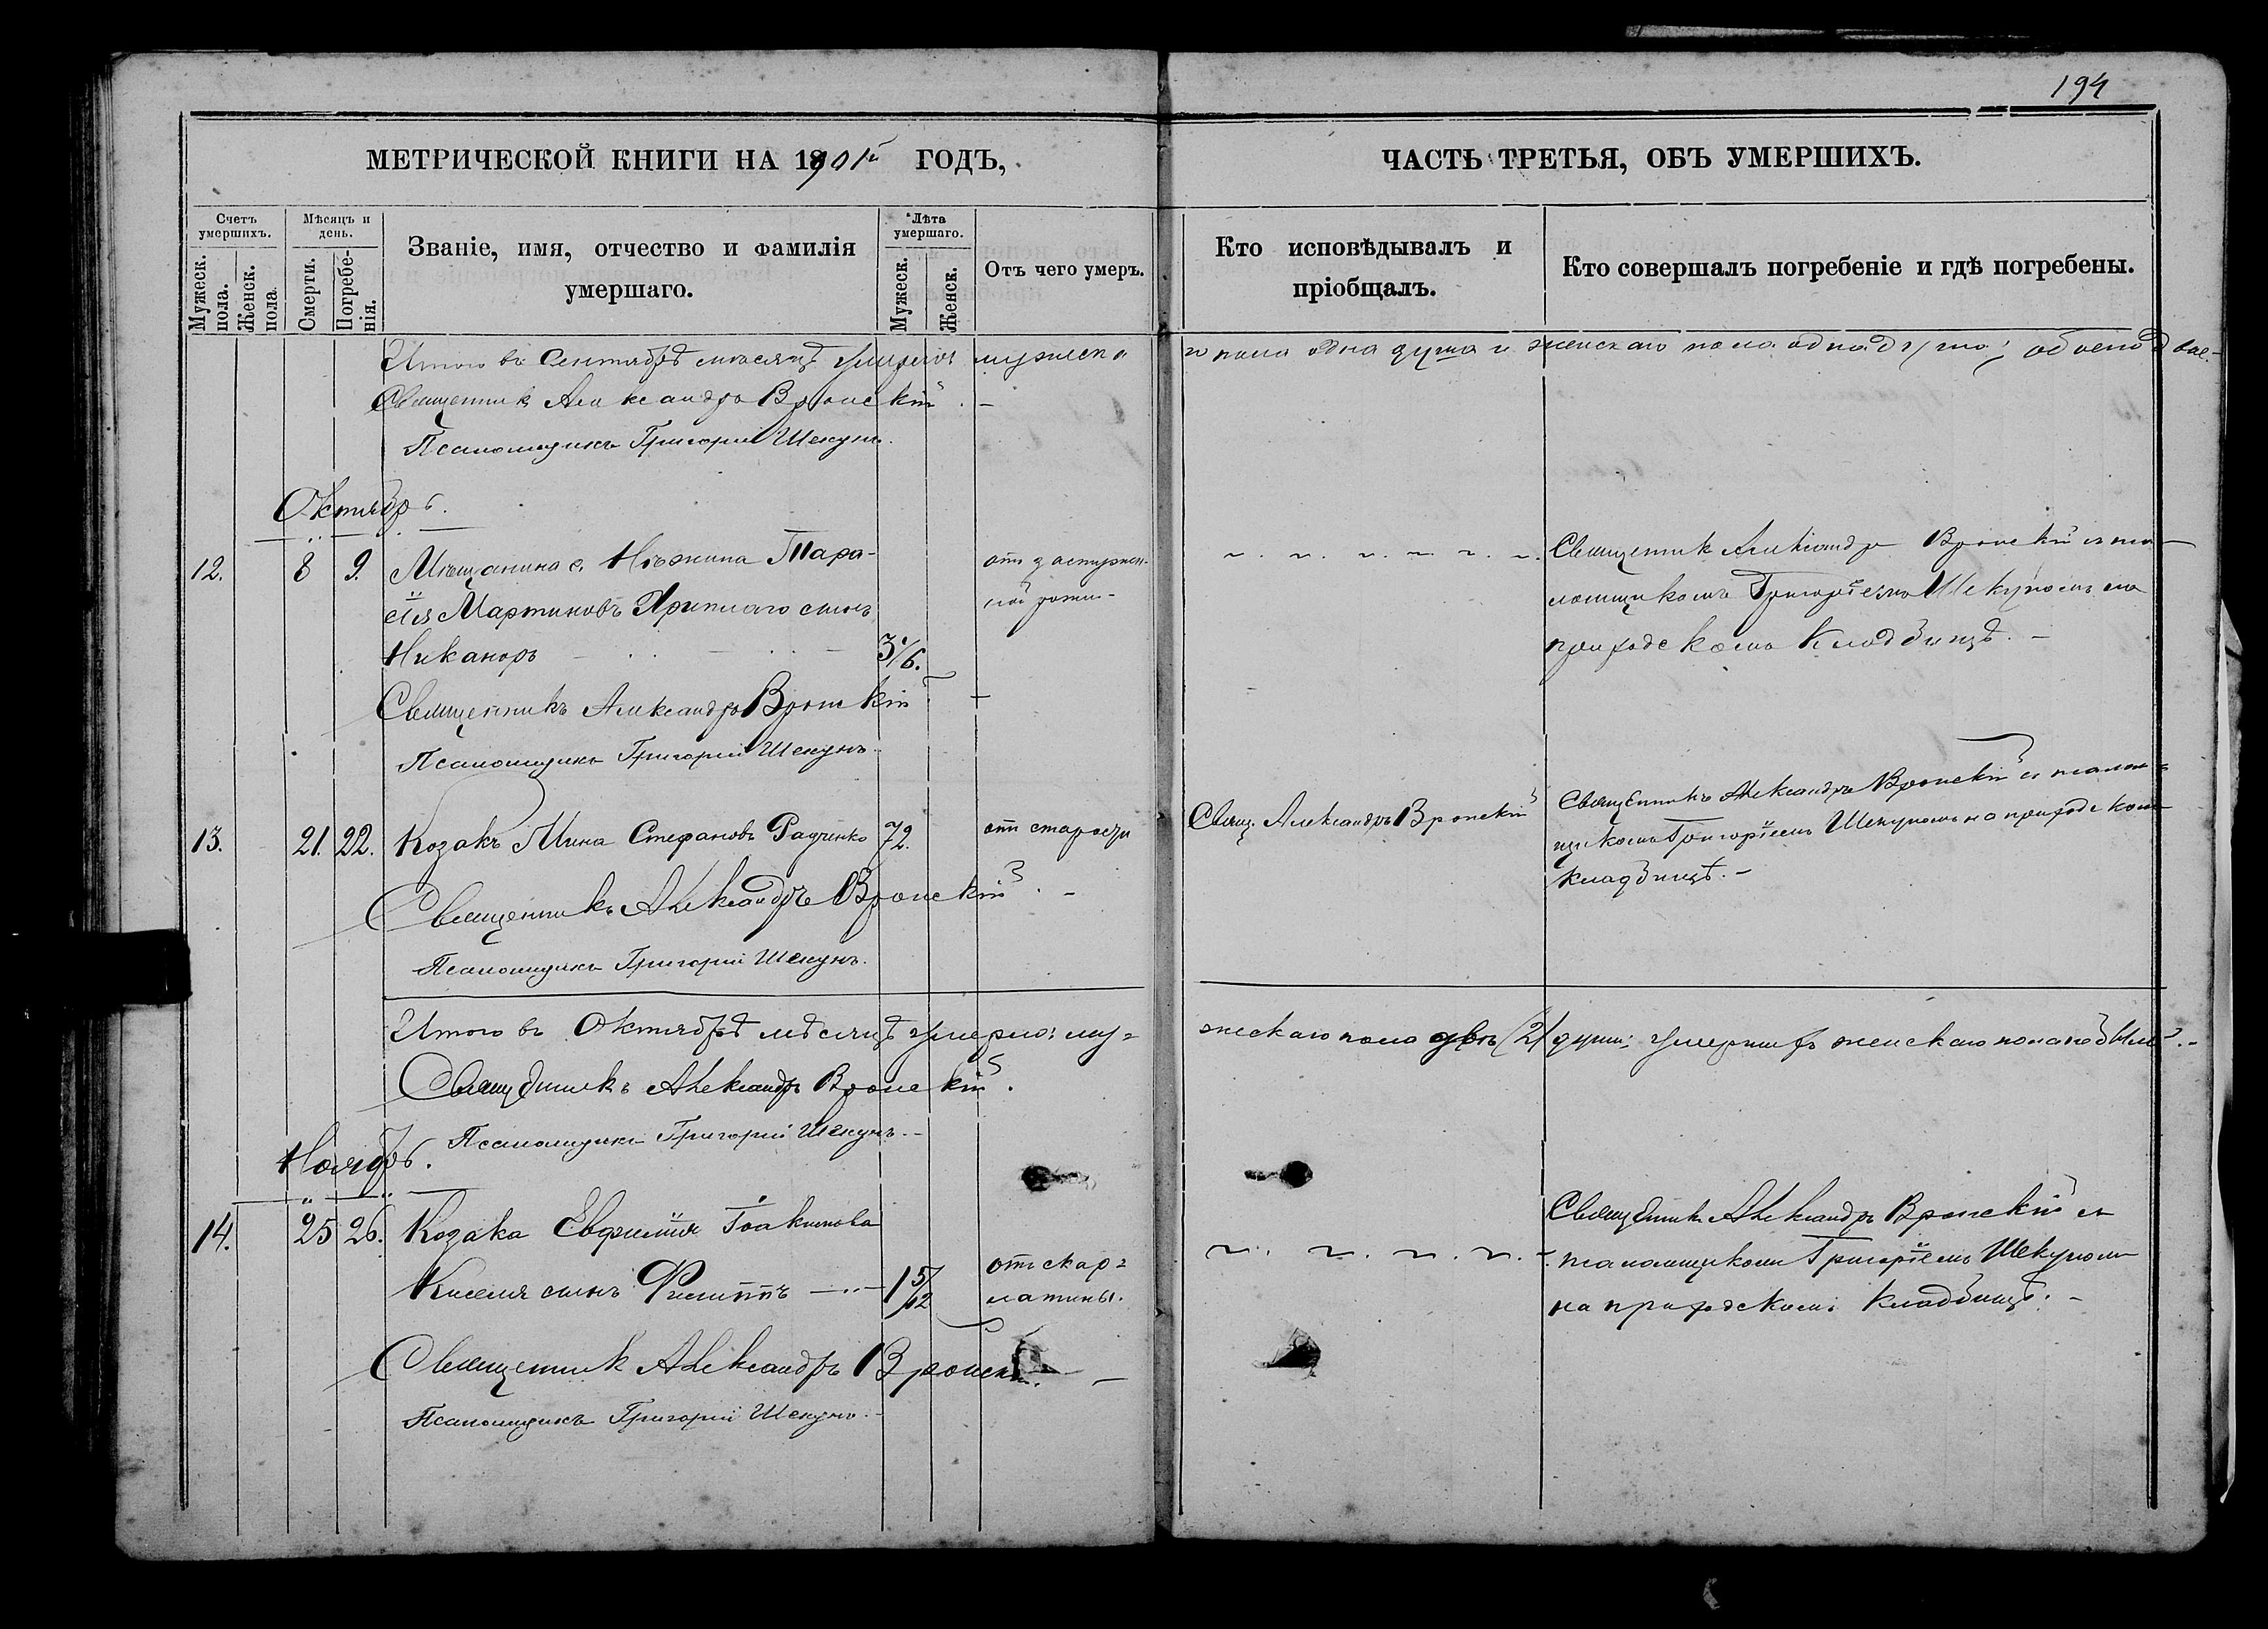 194
МЕТРИЧЕСКОЙ КНИГИ НА 1901й ГОДЪ,
ЧАСТЬ ТРЕТЬЯ, ОБЪ УМЕРШИХЪ.
Счетъ умершихъ.
Мужеск. пола.
Женск. пола
Мѣсяцъ и день.
Смерти.
Погребенія.
Званіе, имя, отчество и фамилія
умершаго.
Лѣта умершаго.
Мужеск.
Женск.
Отъ чего умеръ.
Кто исповѣдывалъ и
пріобщалъ.
Кто совершалъ погребеніе и гдѣ погребены.
Итого въ Сентябрѣ мѣсяцѣ умерло: мужеска
го пола одна душа и женскаго пола одна душа; обоего двѣ.-
Священникъ Александръ Вронскій. -
Псаломщикъ Григорій Шекунъ.
Октябрь.
12. 8 9. Мѣщанина г. Нѣжина Тара-
сія Мартинова сынъ
Никаноръ 3/6.
Священникъ Александръ Вронскій и пса-
ломщикомъ Григоріемъ Шекуномъ на
приходскомъ кладбищѣ. -
Священникъ Александръ Вронскій
Псаломщикъ Григорій Шекунъ.
13. 21. 22. Козакъ Мина Стефановъ Радченко 72. отъ старости
Свящ. Александръ Вронскій
Священникъ Александръ Вронскій съ псалом-
щикомъ Григоріемъ Шекуномъ на приходском
кладбищѣ. -
Священникъ Александръ Вронскій. -
Псаломщикъ Григорій Шекунъ.
Итого въ Октябрѣ мѣсяцѣ умерло: му-
жескаго пола двѣ (2) души; умершихъ женскаго пола не было. -
Священникъ Александръ Вронскій.
Псаломщикъ Григорій Шекунъ. -
Ноябрь.
14. 25 26. Козака Евфимія Іоакимова
Киселя сынъ Филиппъ 1 5/12
отъ скар-
латины.
Священникъ Александръ Вронскій съ
псаломщикомъ Григоріемъ Шекуномъ
на приходскомъ кладбищѣ. -
Священникъ Александръ Вронскій. -
Псаломщикъ Григорій Шекунъ. -